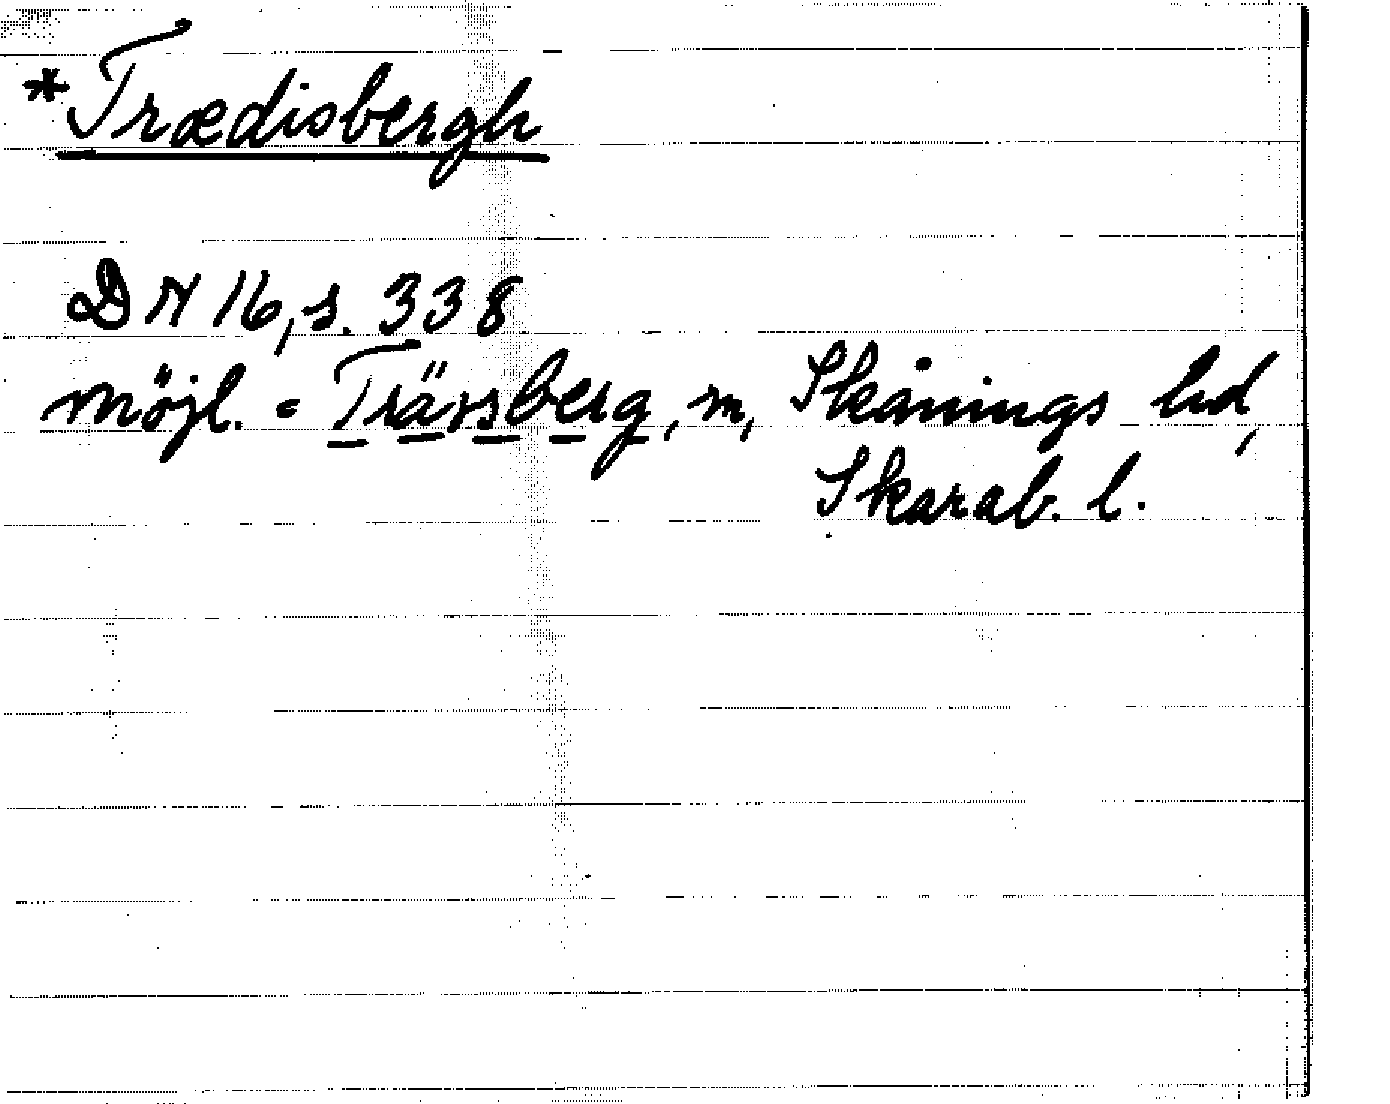 *Trædisbergh
DN 16, s. 338
möjl. = Trässberg, sn, Skånings hd,
Skarab. l.